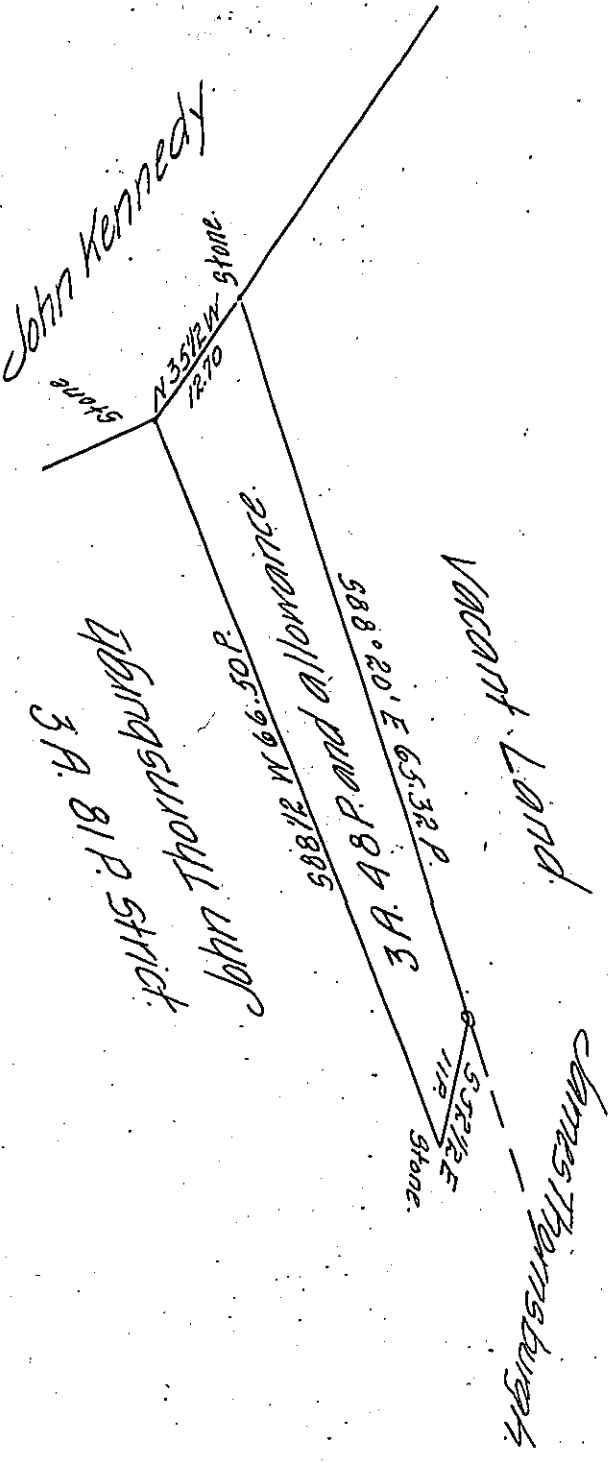 John Kennedy.
Stone
N 35 1/2 W
12.70
Stone.
Vacant Land
S 88° 20' E 65.32 P.
3 A. 48 P. and allowance.
S 88 1/2 W 66.50 P.
John Thornsburgh
3 A. 81 P. Strict.
S 52 1/2 E
11 P.
Stone.
James Thornsburgh.